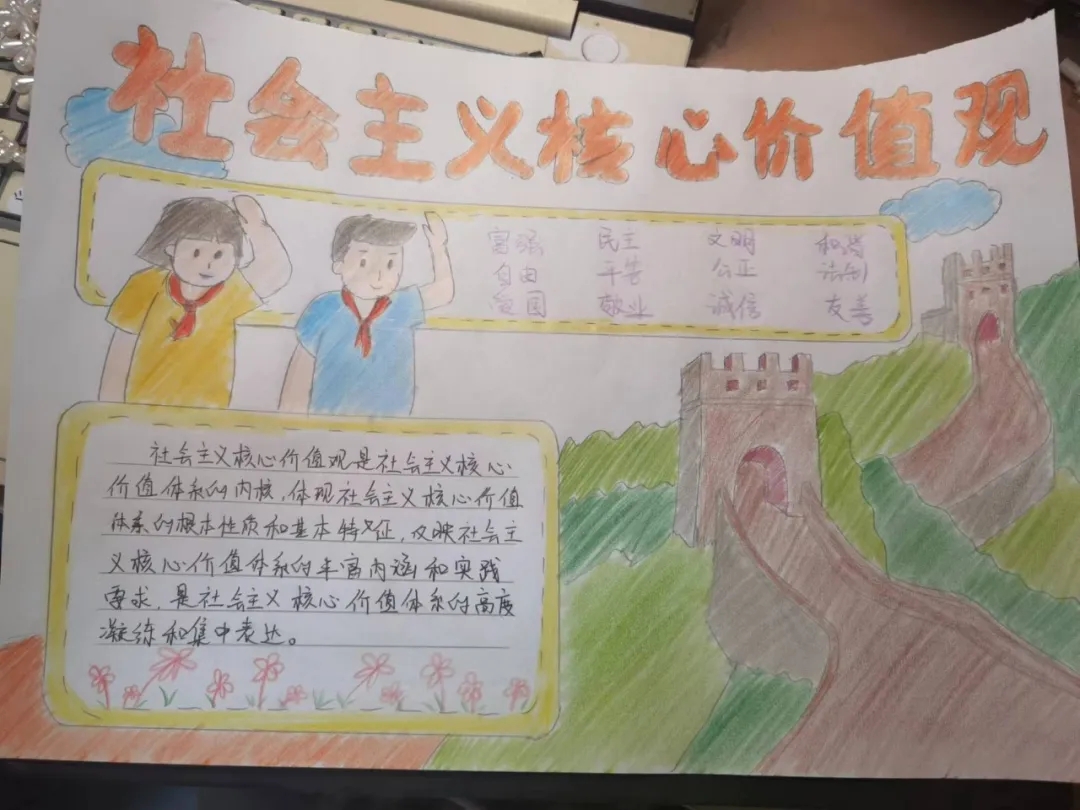 社会主义核心价值观
富强 民主 文明 和谐
自由 平等 公正 法制
爱国 敬业 诚信 友善
社会主义核心价值观是社会主义核心
价值体系的内核,体现社会主义核心价值
体系的根本性质和基本特征,反映社会主
义核心价值体系的丰富内涵和实践
要求,是社会主义核心价值体系的高度
凝练和集中表达。